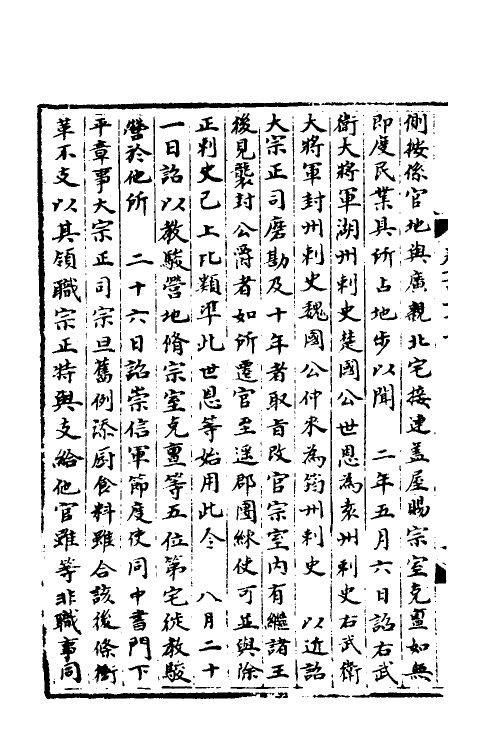 側按係官地與廣親北宅接連蓋屋賜宗室克亶如無
即度民業具所占地步以聞　二年五月六日詔右武
衛大將軍湖州刺史楚國公世恩為袁州刺史右武衛
大將軍封州刺史魏國公仲來為筠州刺史　以近詔
大宗正司磨勘及十年者取旨改官宗室內有繼諸王
後見襲封公爵者如所遷官至遙郡團練使可並與除
正刺史已上比類準此世恩等始用此令　八月二十
一日詔以教駿營地脩宗室克亶等五位第宅徙教駿
營於他所　二十六日詔崇信軍節度使同中書門下
平章事大宗正司宗旦舊例添厨食料雖合該後條衝
革不支以其領職宗正特與支給他官雖等非職事同